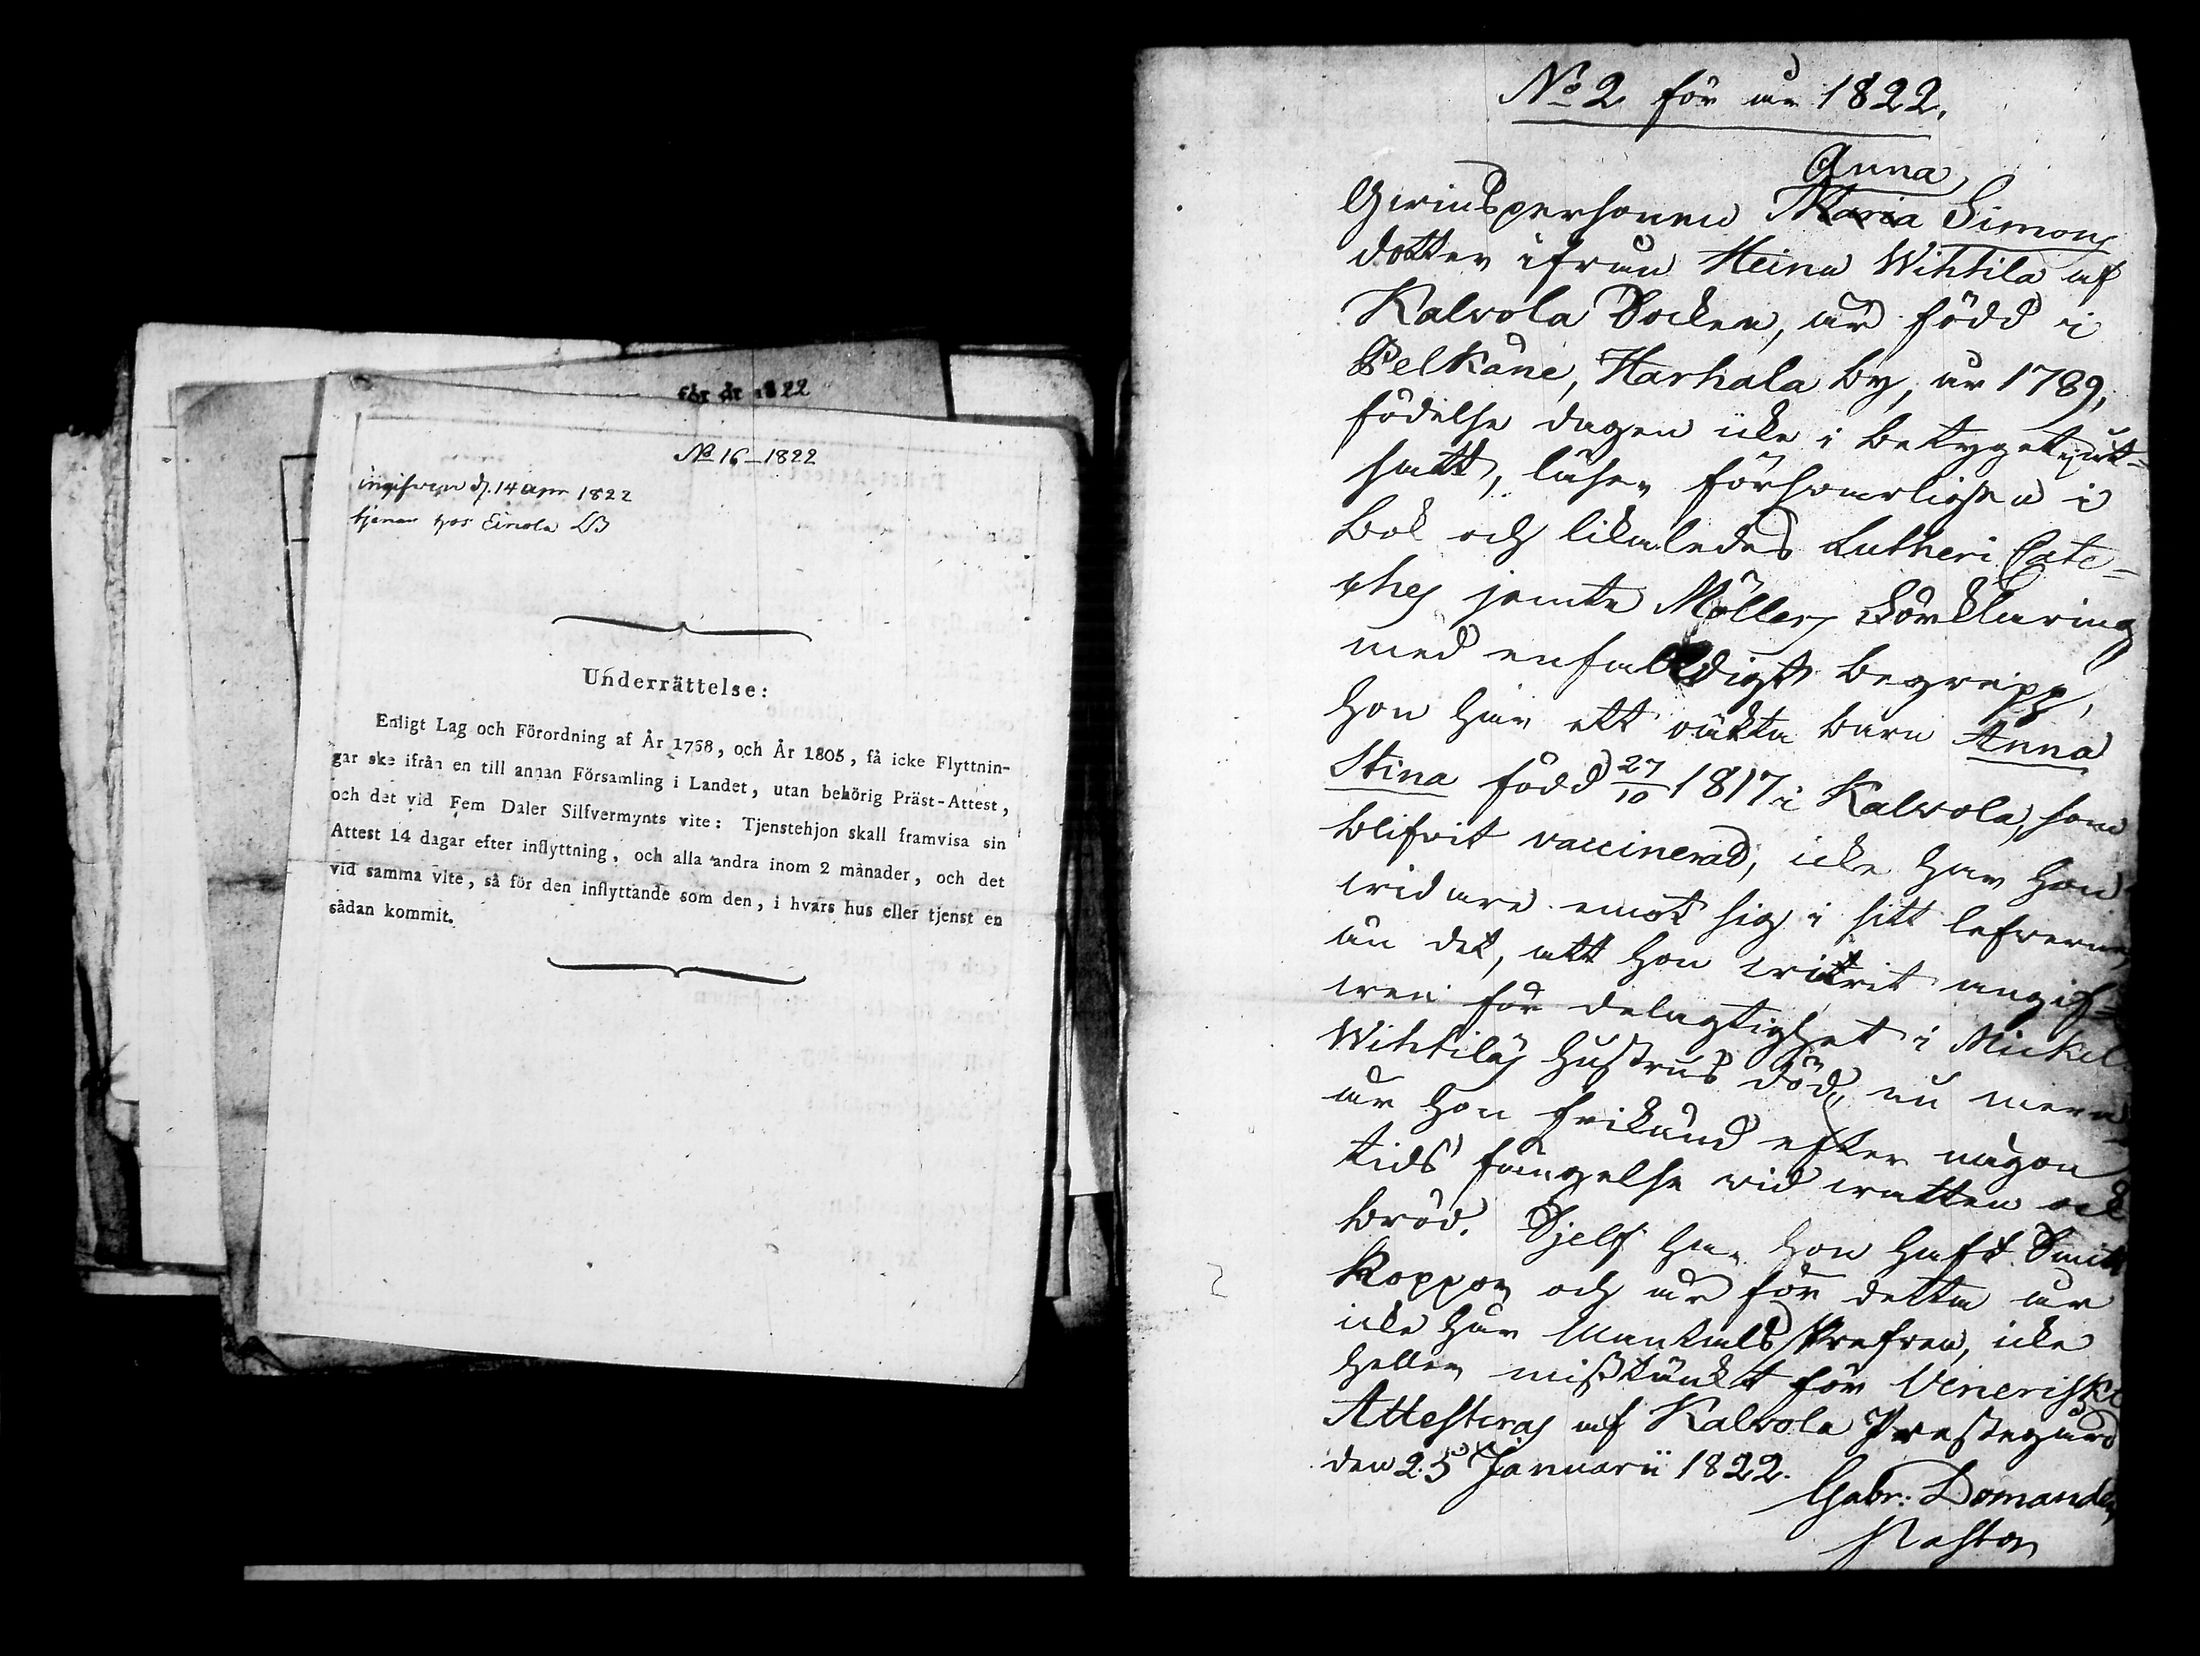 för år 1822
No 16 – 1822
ingifwen d. 14 Apr 1822
tjenar hos Eirola
Underrättelse:
Enligt Lag och Förordning af År 1768, och År 1805, få icke Flyttnin-
gar ske ifrån en till annan Församling i Landet, utan behörig Präst-Attest,
och det vid Fem Daler Silfvermynts vite: Tjenstehjon skall framvisa sin
Attest 14 dagar efter inflyttning, och alla andra inom 2 månader, och det
vid samma vite, så för den inflyttande som den, i hvars hus eller tjenst en
sådan kommit.
No 2 för år 1822.
Anna
Qwinspersonen Maria Simons
dotter ifrån Heinu Wihtila af
Kalvola Socken, är född i
Pelkäne, Harhala by, år 1789,
födelse dagen icke i betyget ut-
satt, läser försvarligen i
bok och likaledes Lutheri Cate-
ches jemte Möllers Förklaring
med enfaldigt begrepp,
hon har ett oäkta barn Anna
Stina född 27/10 1817 i Kalvola, som
blifvit vaccinerad, icke har hon
widare emot sig i sitt lefwerne
än det, att hon warit angif-
wen för delagtighet i Mickel
Wihtiläs hustrus död, nu mera
är hon frikänd efter någon
tids fängelse vid watten och
bröd. Sjelf har hon haft Små
Koppor och är för detta år
icke här Mantals skrefven, icke
heller misstänkt för Veneriska
Attesteras af Kalvola Prestegård
den 25 Januarii 1822.
Gabr: Domander
Pastor